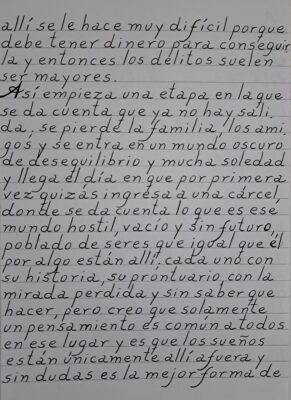 allí se le hace muy difícil porque
debe tener dinero para conseguir
la y entonces los delitos suelen
ser mayores.
Así empieza una etapa en la que
se da cuenta que ya no hay sali.
da, se pierde la familia, los ami.
gos y se entra en un mundo oscuro
de desequilibrio y mucha soledad
y llega el día en que por primera
vez quizás ingresa a una cárcel,
donde se da cuenta lo que es ese
mundo hostil, vacío y sin futuro,
poblado de seres que igual que él
por algo están allí, cada uno con
su historia, su prontuario, con la
mirada perdida y sin saber que
hacer, pero creo que solamente
un pensamiento es común a todos
en ese lugar y es que los sueños
están únicamente allí afuera y
sin dudas es la mejor forma de